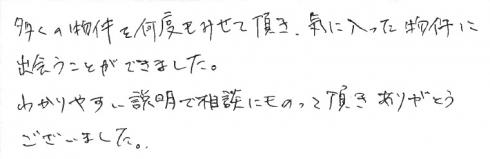 多くの物件を何度もみせて頂き、気に入った物件に
出会うことができました。
わかりやすい説明で相談にものって頂きありがとう
ございました。